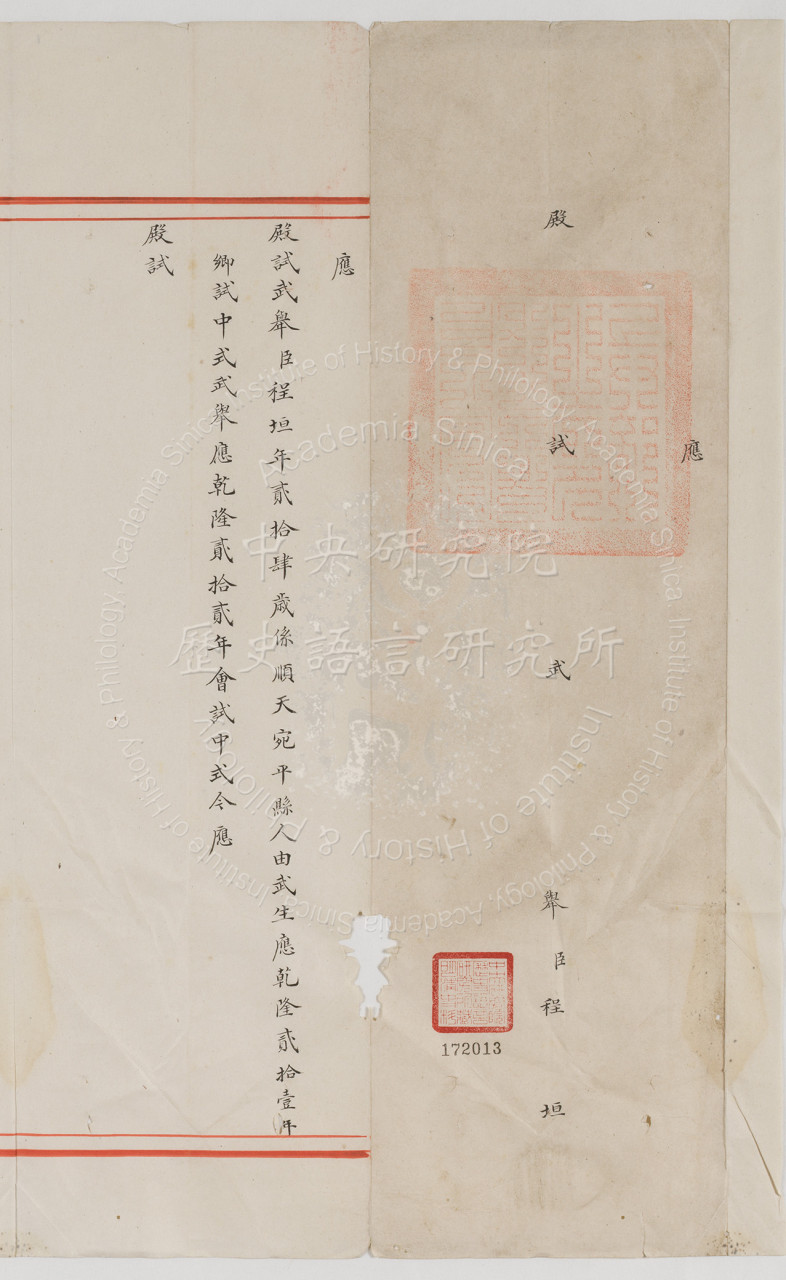 應
殿試武舉臣程垣
應
殿試武舉臣程垣年貳拾肆歲係順天宛平縣人由武生應乾隆貳拾壹年
鄉試中式武舉應乾隆貳拾貳年會試中式今應
殿試
172013
中央研究院
歷史語言研究所
Institute of History & Philology, Academia Sinica